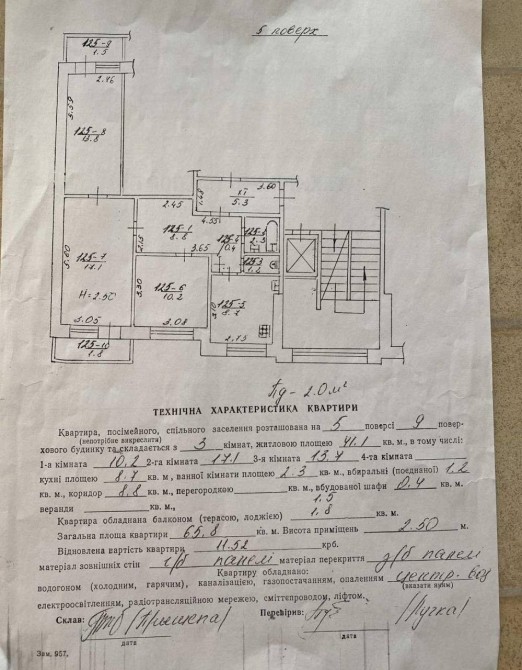 5 поверх
125-9
1.5
2.46
5.59
125-8
13.8
3.60
1.48
XI
5.3
2.45
4.55
125-1
8.8
125-2
2.3
125-4
0.4
2.15
3.65
125-3
1.2
5.60
125-7
17.1
H=2.50
3.30
125-6
10.2
3.10
125-5
8.7
3.05
3.08
2.75
125-10
1.8
Пд - 2.0 м²
ТЕХНІЧНА ХАРАКТЕРИСТИКА КВАРТИРИ
Квартира, посімейного, спільного заселення розташована на 5 поверсі 9 повер-
(непотрібне викреслити)
хового будинку та складається з 3 кімнат, житловою площею 41.1 кв. м, в тому числі:
1-а кімната 10.2 2-га кімната 17.1 3-я кімната 13.7 4-та кімната
кухні площею 8.7 кв. м, ванної кімнати площею 2.3 кв. м, вбиральні (поєднаної) 1.2
кв. м, коридор 8.8 кв. м, перегородкою кв. м, вбудованої шафи 0.4 кв. м.
веранди кв. м,
1.5
Квартира обладнана балконом (терасою, лоджією) 1.8 кв. м.
Загальна площа квартири 65.8 кв. м. Висота приміщень 2.50 м.
Відновлена вартість квартири 11.52 крб.
матеріал зовнішніх стін з/б панелі матеріал перекриття з/б панелі
Квартиру обладнано:
водогоном (холодним, гарячим), каналізацією, газопостачанням, опаленням центр.
(вказати яким)
електроосвітленням, радіотрансляційною мережею, сміттєпроводом, ліфтом.
Склав: Перевірив:
дата дата
Зам. 957.